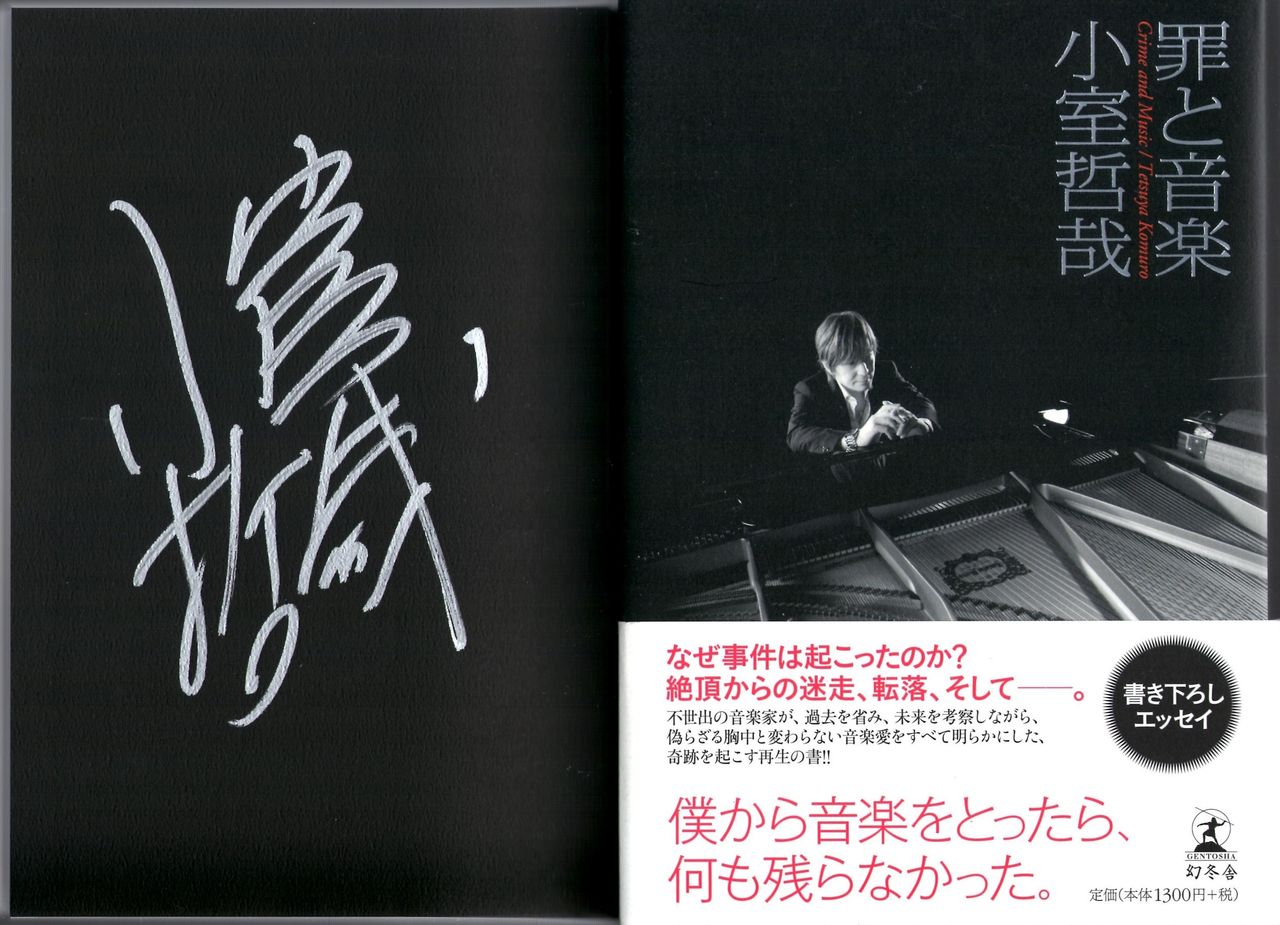 小室哲哉
罪と音楽
Crime and Music / Tetsuya Komuro
小室哲哉
なぜ事件は起こったのか?
絶頂からの迷走、転落、そして――。
不世出の音楽家が、過去を省み、未来を考察しながら、
偽らざる胸中と変わらない音楽愛をすべて明らかにした、
奇跡を起こす再生の書!!
書き下ろし
エッセイ
僕から音楽をとったら、
何も残らなかった。
GENTOSHA
幻冬舎
定価(本体1300円+税)